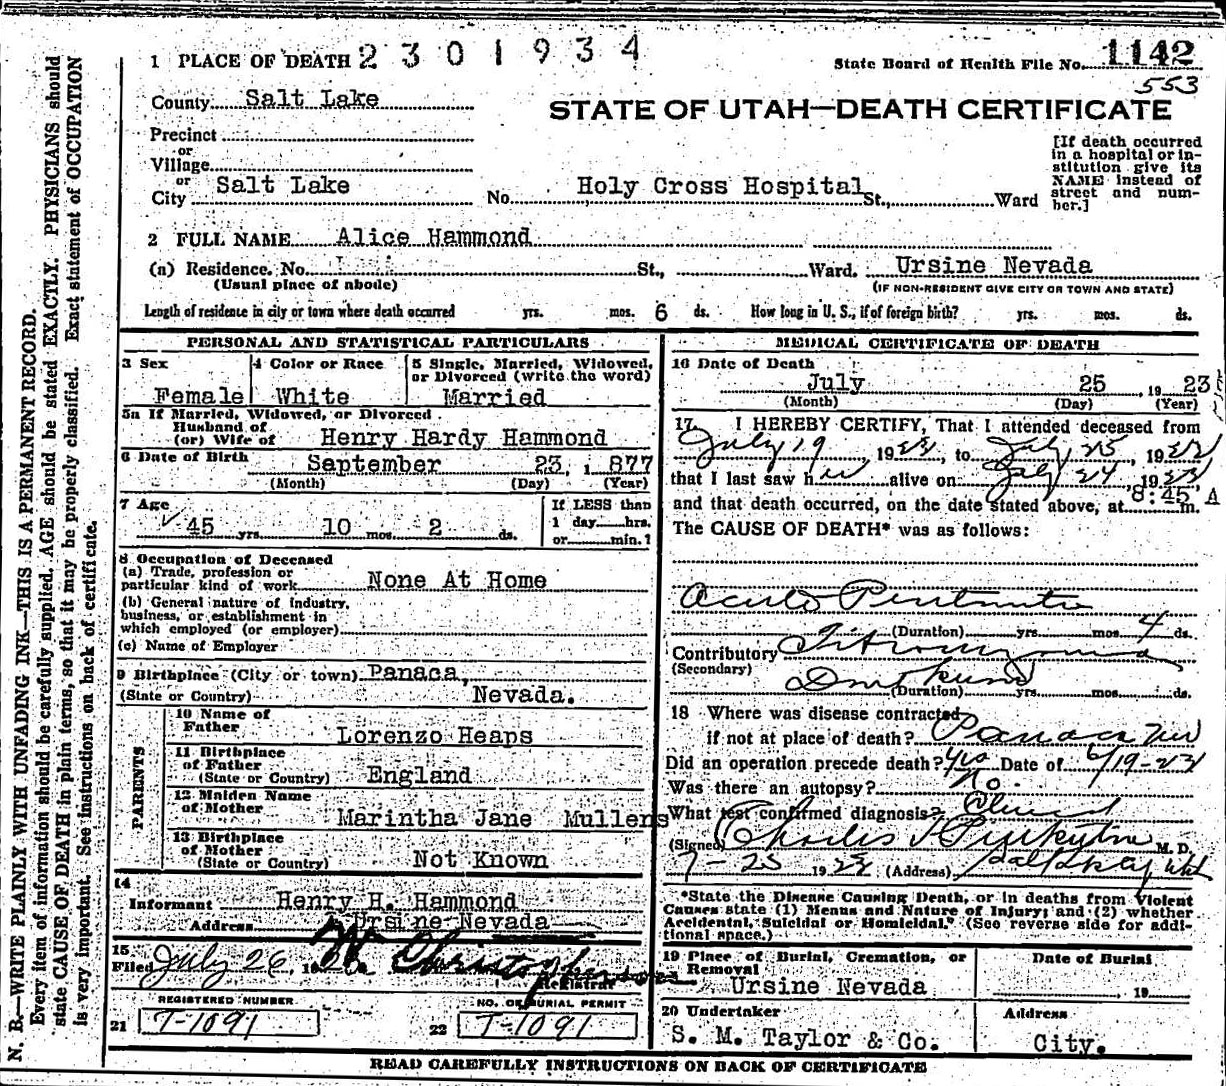 N. B.—WRITE PLAINLY WITH UNFADING INK—THIS IS A PERMANENT RECORD.
Every item of information should be carefully supplied. AGE should be stated EXACTLY. PHYSICIANS should
state CAUSE OF DEATH in plain terms, so that it may be properly classified. Exact statement of OCCUPATION
is very important. See instructions on back of certificate.
1 PLACE OF DEATH 2 3 0 1 9 3 4
State Board of Health File No. 1142
553
County Salt Lake
STATE OF UTAH—DEATH CERTIFICATE
Precinct
or
Village
or
City Salt Lake No. Holy Cross Hospital St., Ward
[If death occurred
in a hospital or in-
stitution give its
NAME instead of
street and num-
ber.]
2 FULL NAME Alice Hammond
(a) Residence. No. St., Ward. Ursine Nevada
(Usual place of abode) (IF NON-RESIDENT GIVE CITY OR TOWN AND STATE)
Length of residence in city or town where death occurred yrs. mos. 6 ds. How long in U. S., if of foreign birth? yrs. mos. ds.
PERSONAL AND STATISTICAL PARTICULARS
3 Sex
Female
4 Color or Race
White
5 Single, Married, Widowed,
or Divorced (write the word)
Married
5a If Married, Widowed, or Divorced
Husband of
(or) Wife of Henry Hardy Hammond
6 Date of Birth September 23, 1 877
(Month) (Day) (Year)
7 Age
45 yrs. 10 mos. 2 ds.
If LESS than
1 day hrs.
or min.?
8 Occupation of Deceased
(a) Trade, profession or
particular kind of work None At Home
(b) General nature of industry,
business, or establishment in
which employed (or employer)
(c) Name of Employer
9 Birthplace (City or town) Panaca,
(State or Country) Nevada.
PARENTS
10 Name of
Father Lorenzo Heaps
11 Birthplace
of Father
(State or Country) England
12 Maiden Name
of Mother Marintha Jane Mullens
13 Birthplace
of Mother
(State or Country) Not Known
14
Informant Henry H. Hammond
Address Ursine Nevada
15
Filed July 26, 19
Registrar
REGISTERED NUMBER NO. OF BURIAL PERMIT
21 T-1091 22 T-1091
MEDICAL CERTIFICATE OF DEATH
16 Date of Death
July 25, 1923
(Month) (Day) (Year)
17 I HEREBY CERTIFY, That I attended deceased from
July 19, 1923, to July 25, 1923
that I last saw her alive on July 24, 1923
and that death occurred, on the date stated above, at 8:45 A m.
The CAUSE OF DEATH* was as follows:
Acute Peritonitis
(Duration) yrs. mos. 4 ds.
Contributory
(Secondary)
(Duration) yrs. mos. ds.
18 Where was disease contracted
if not at place of death? Panaca Nev
Did an operation precede death? yes Date of
Was there an autopsy? No.
What test confirmed diagnosis?
(Signed) Charles M. D.
7-25 1923 (Address) Salt Lake City Utah
*State the Disease Causing Death, or in deaths from Violent
Causes state (1) Menus and Nature of Injury; and (2) whether
Accidental, Suicidal or Homicidal." (See reverse side for addi-
tional space.)
19 Place of Burial, Cremation, or
Removal
Ursine Nevada
Date of Burial
19
20 Undertaker
S. M. Taylor & Co.
Address
City.
READ CAREFULLY INSTRUCTIONS ON BACK OF CERTIFICATE